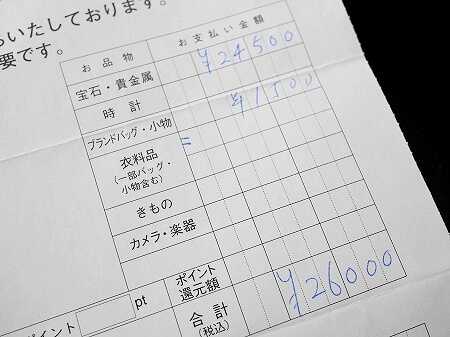 らいたしております。
要です。
お品物 お支払い金額
宝石・貴金属 ¥24500
時計
ブランドバッグ・小物 = ¥1500
衣料品
(一部バッグ・
小物含む)
きもの
カメラ・楽器
ポイント pt ポイント
還元額
合計
(税込) ¥26000